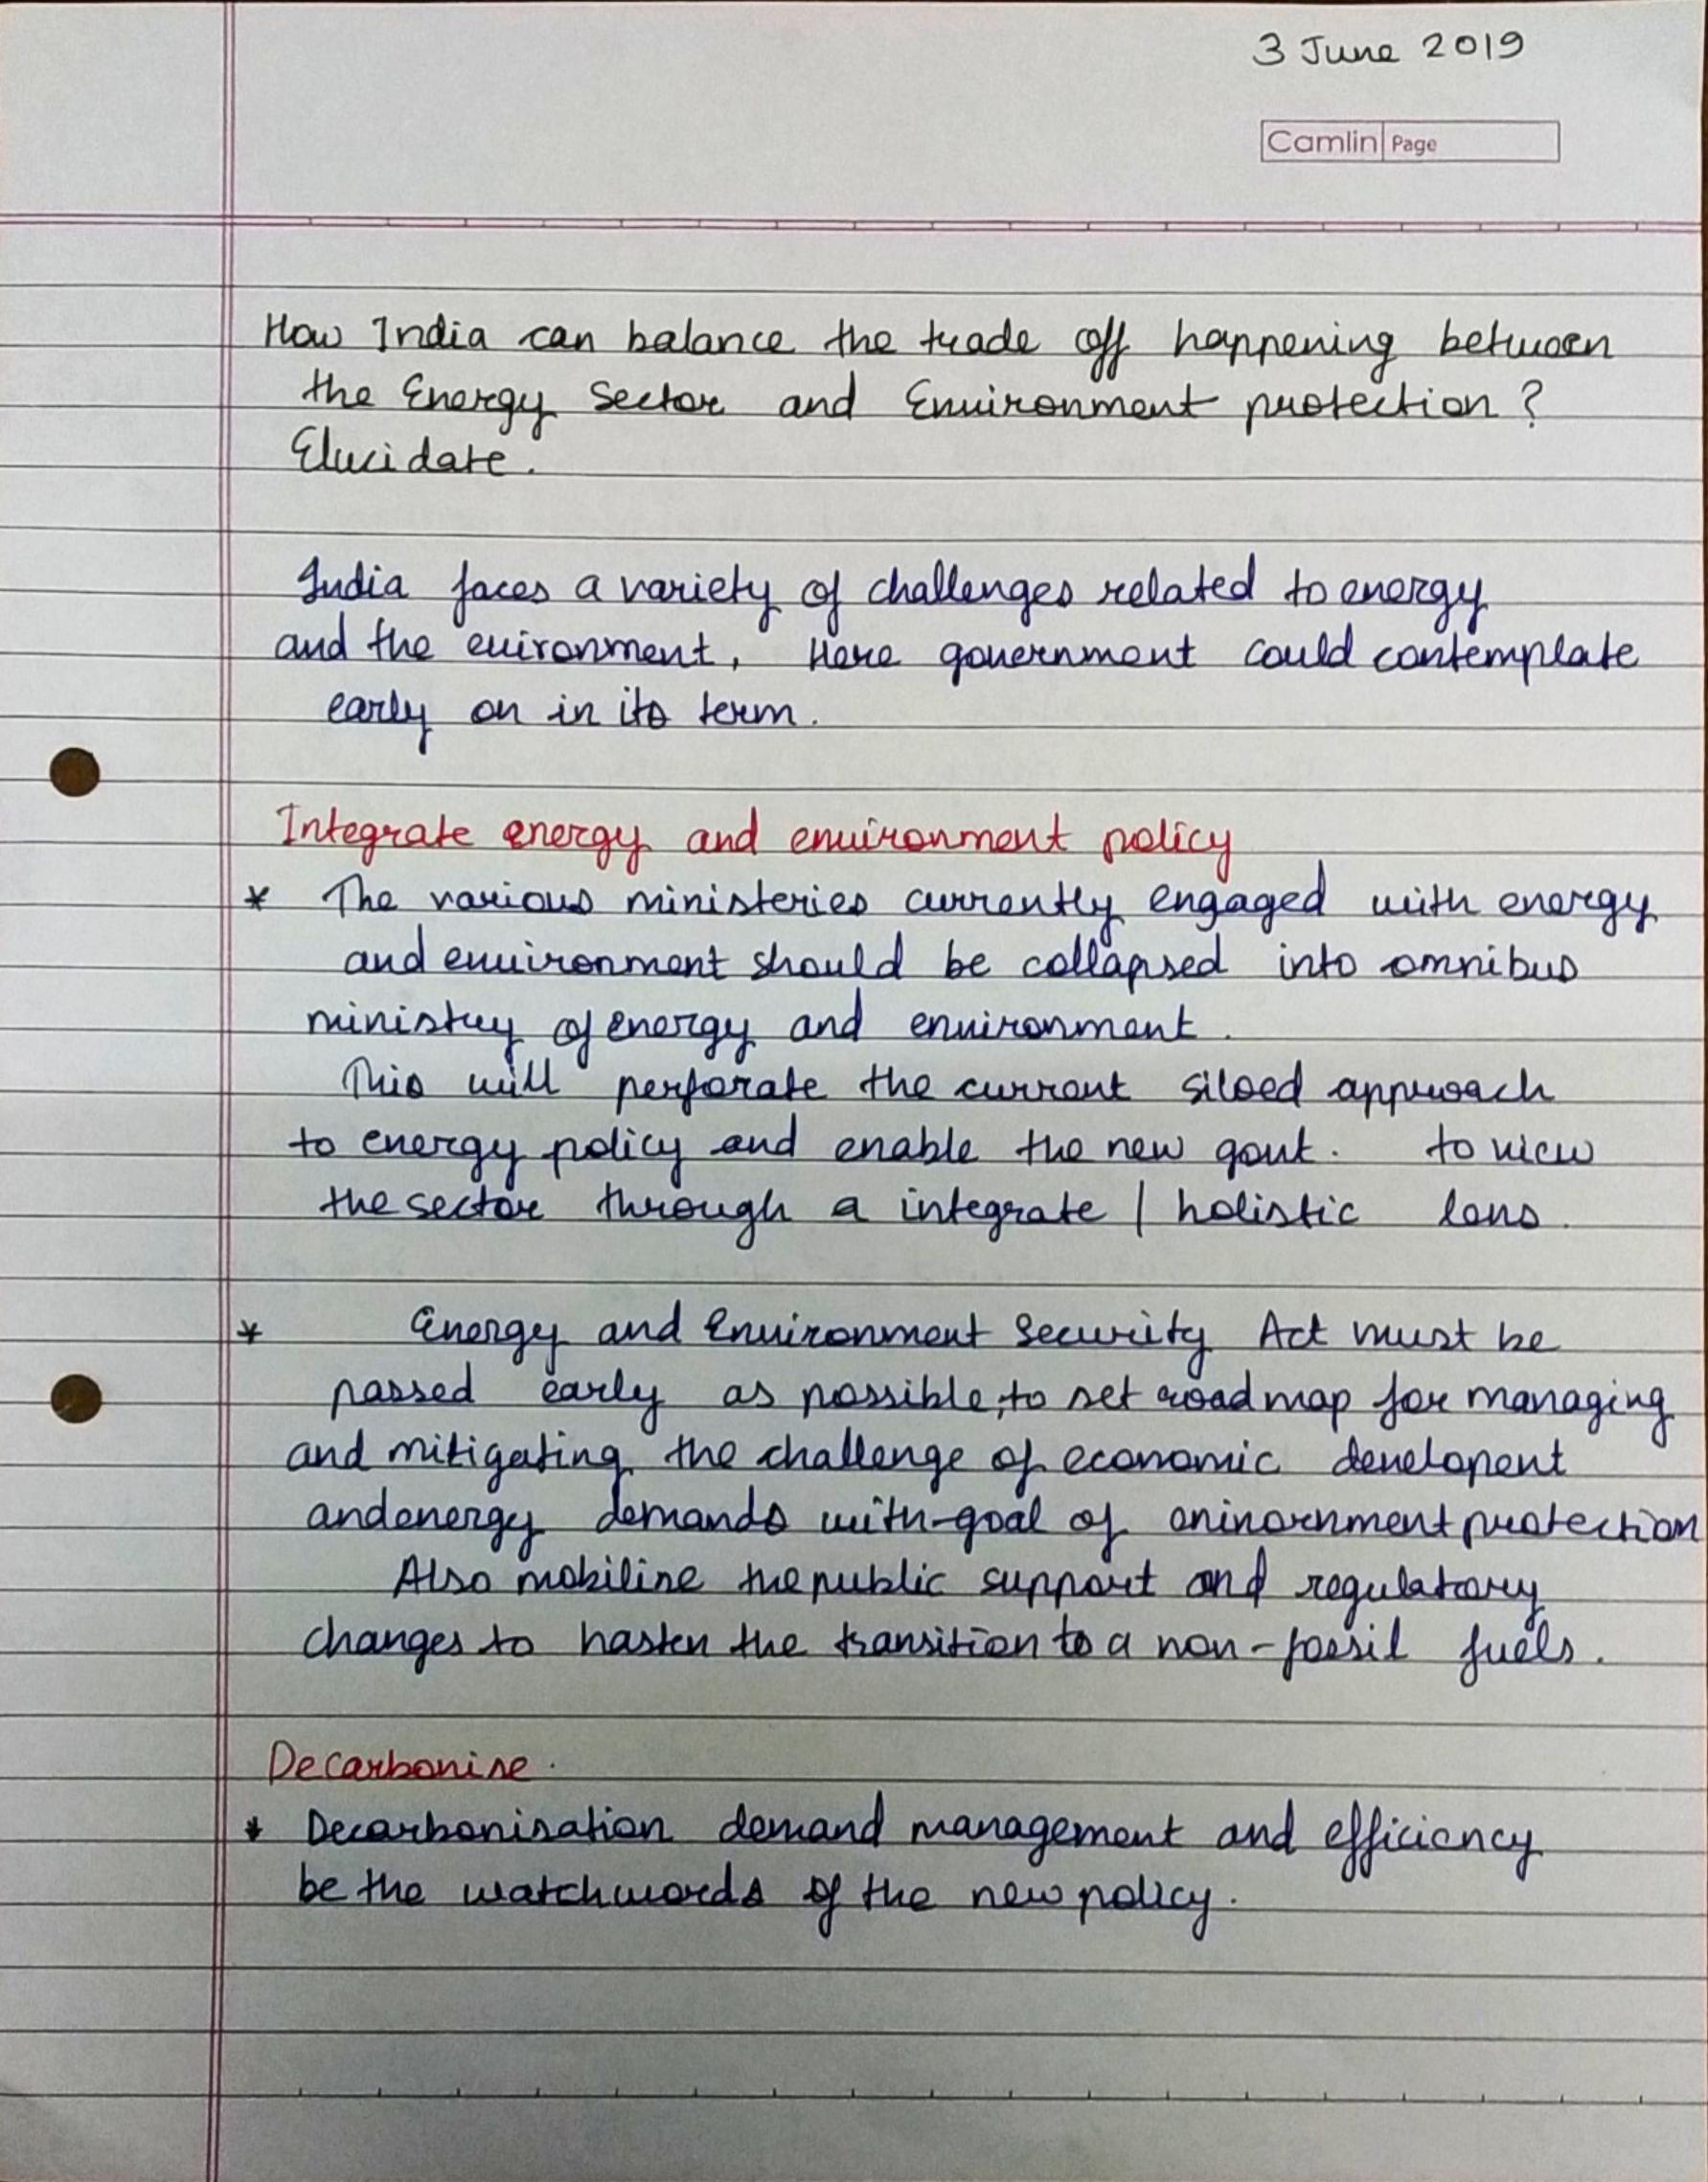 3 June 2019
Camlin Page
How India can balance the trade off happening between
the Energy Sector and Environment protection ?
Elucidate.
India faces a variety of challenges related to energy
and the euironment, Here government could contemplate
early on in its term.
Integrate energy and environment policy
* The various ministeries currently engaged with energy
and environment should be collapsed into omnibus
ministry of energy and environment.
This will perforate the current siloed approach
to energy policy and enable the new govt. to view
the sector through a integrate / holistic lens.
* Energy and Environment Security Act must be
passed early as possible, to set road map for managing
and mitigating the challenge of economic developent
and energy demands with goal of eninornment protection
Also mobilise the public support and regulatory
changes to hasten the transition to a non-fossil fuels.
Decarbonise.
* Decarbonisation demand management and efficiency
be the watchwords of the new policy.